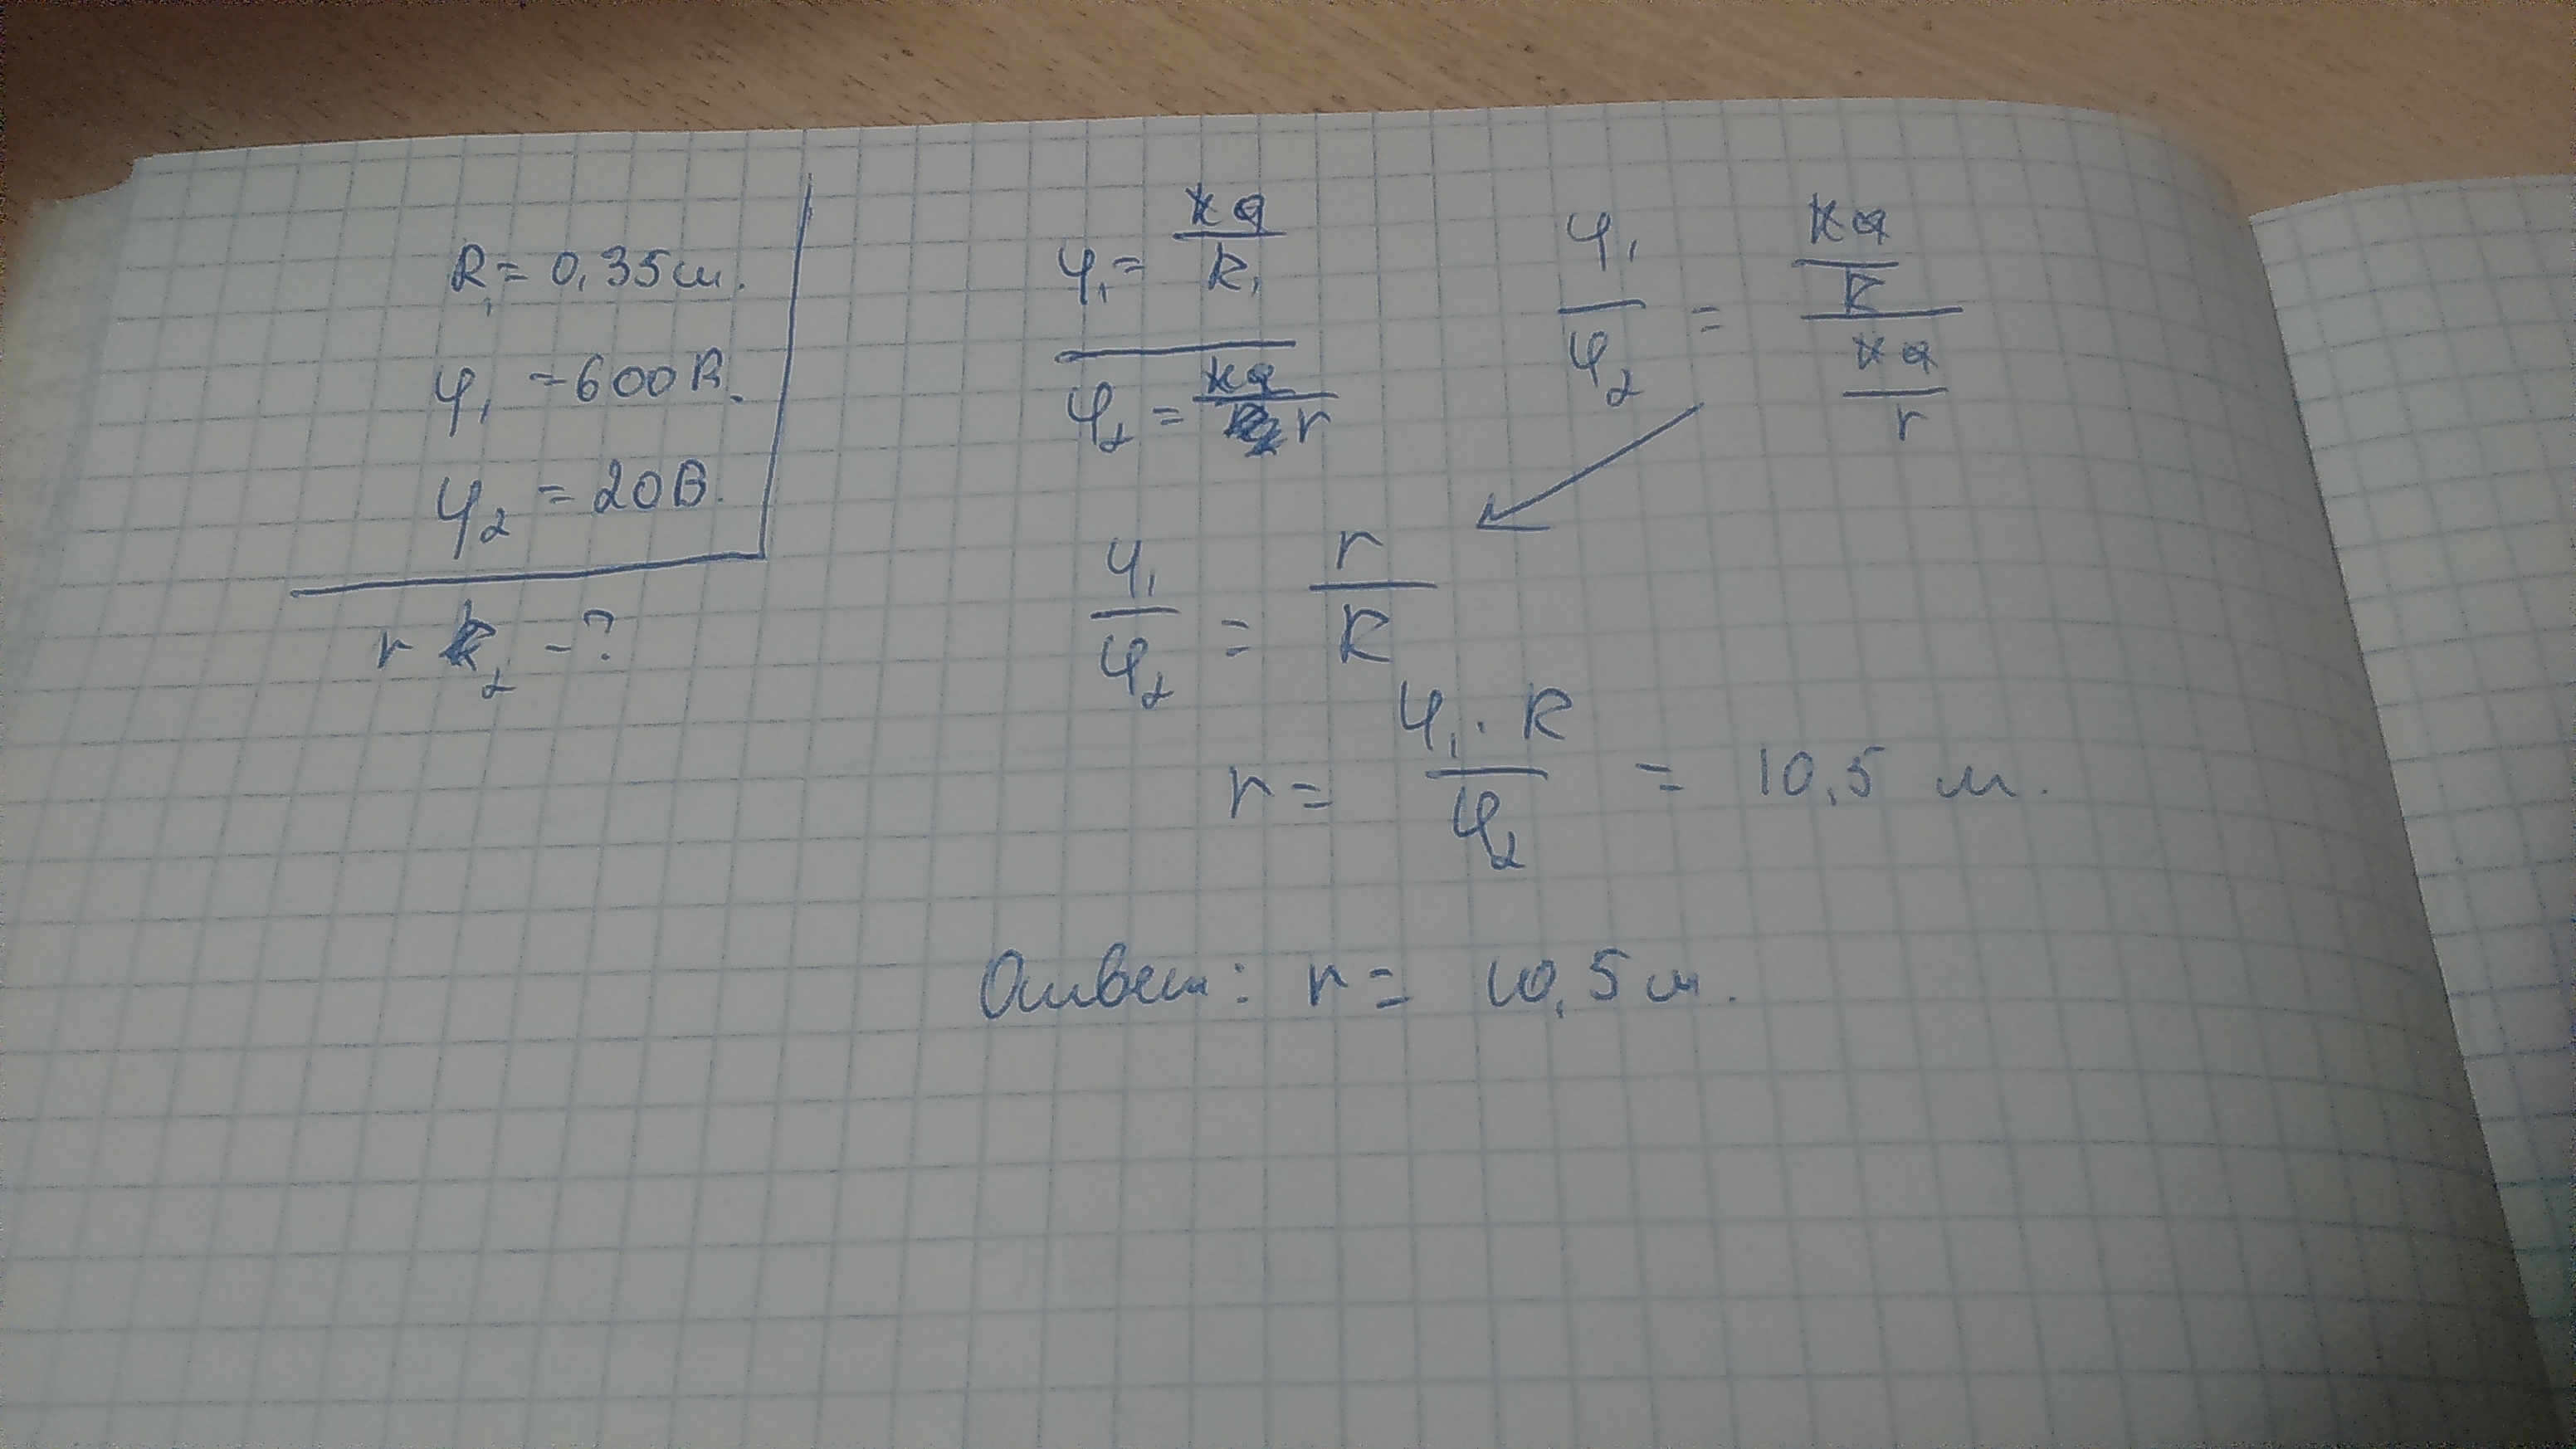 R₁ = 0,35 м.
φ₁ = 600 В.
φ₂ = 20 В.
r - ?
φ₁ = kq / R₁
φ₂ = kq / r
φ₁ / φ₂ = (kq / R) / (kq / r)
φ₁ / φ₂ = r / R
r = φ₁ · R / φ₂ = 10,5 м.
Ответ: r = 10,5 м.